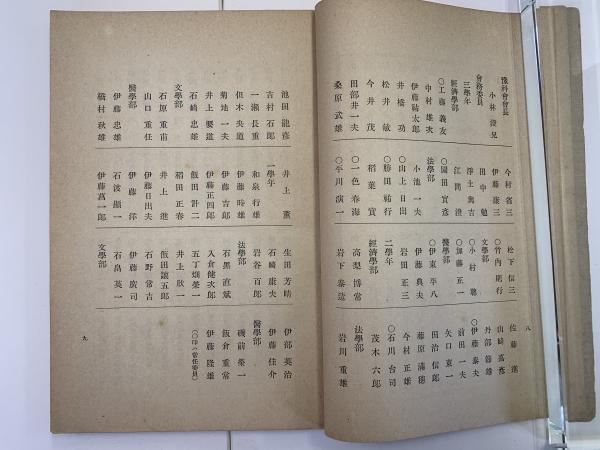 豫科會會長
小林澄兒
會務委員
三學年
經濟學部
○工藤義友
中村雄次
伊藤祐太郎
井橋功
松井敏
今井茂
田部井一夫
桑原武雄
今村省三
伊藤康三
田中勉
淨土眞吉
江間澄
○園田實彦
法學部
小池一夫
○山上日出
○勝田祐行
稻葉實
○一色春海
○平川演一
松下信三
○竹内明行
文學部
○小村聰
○加藤正一
醫學部
○伊東平八
伊藤典夫
岩田正三
二學年
經濟學部
高梨博常
岩下泰造
佐藤進
山崎高彦
丹部節雄
○伊藤泰夫
前田一夫
矢口東一
田治信郎
藤原穗
今村正雄
○石川台司
茂木六郎
法學部
岩川重雄
八
池田龍彦
吉村石郎
一瀬長重
但木央道
菊地一夫
井上要道
石崎忠雄
文學部
石原重前
山口重任
醫學部
伊藤忠雄
橋村秋雄
井上薫
一學年
和泉行雄
伊藤時雄
伊藤吉郎
伊藤正四郎
飯田計二
稻田正春
井上進
伊藤日出夫
伊藤洋
石渡顯一
伊藤萬一郎
生田芳晴
石崎康夫
岩谷百郎
法學部
石黑直斌
入倉健次郎
五丁嫡榮一
井上欣一
飯田讓五郎
石野常吉
伊藤廣司
石畠英一
文學部
伊部英治
伊藤佳介
醫學部
磯前榮一
飯倉重常
伊藤隆雄
(○印ハ常任委員)
九